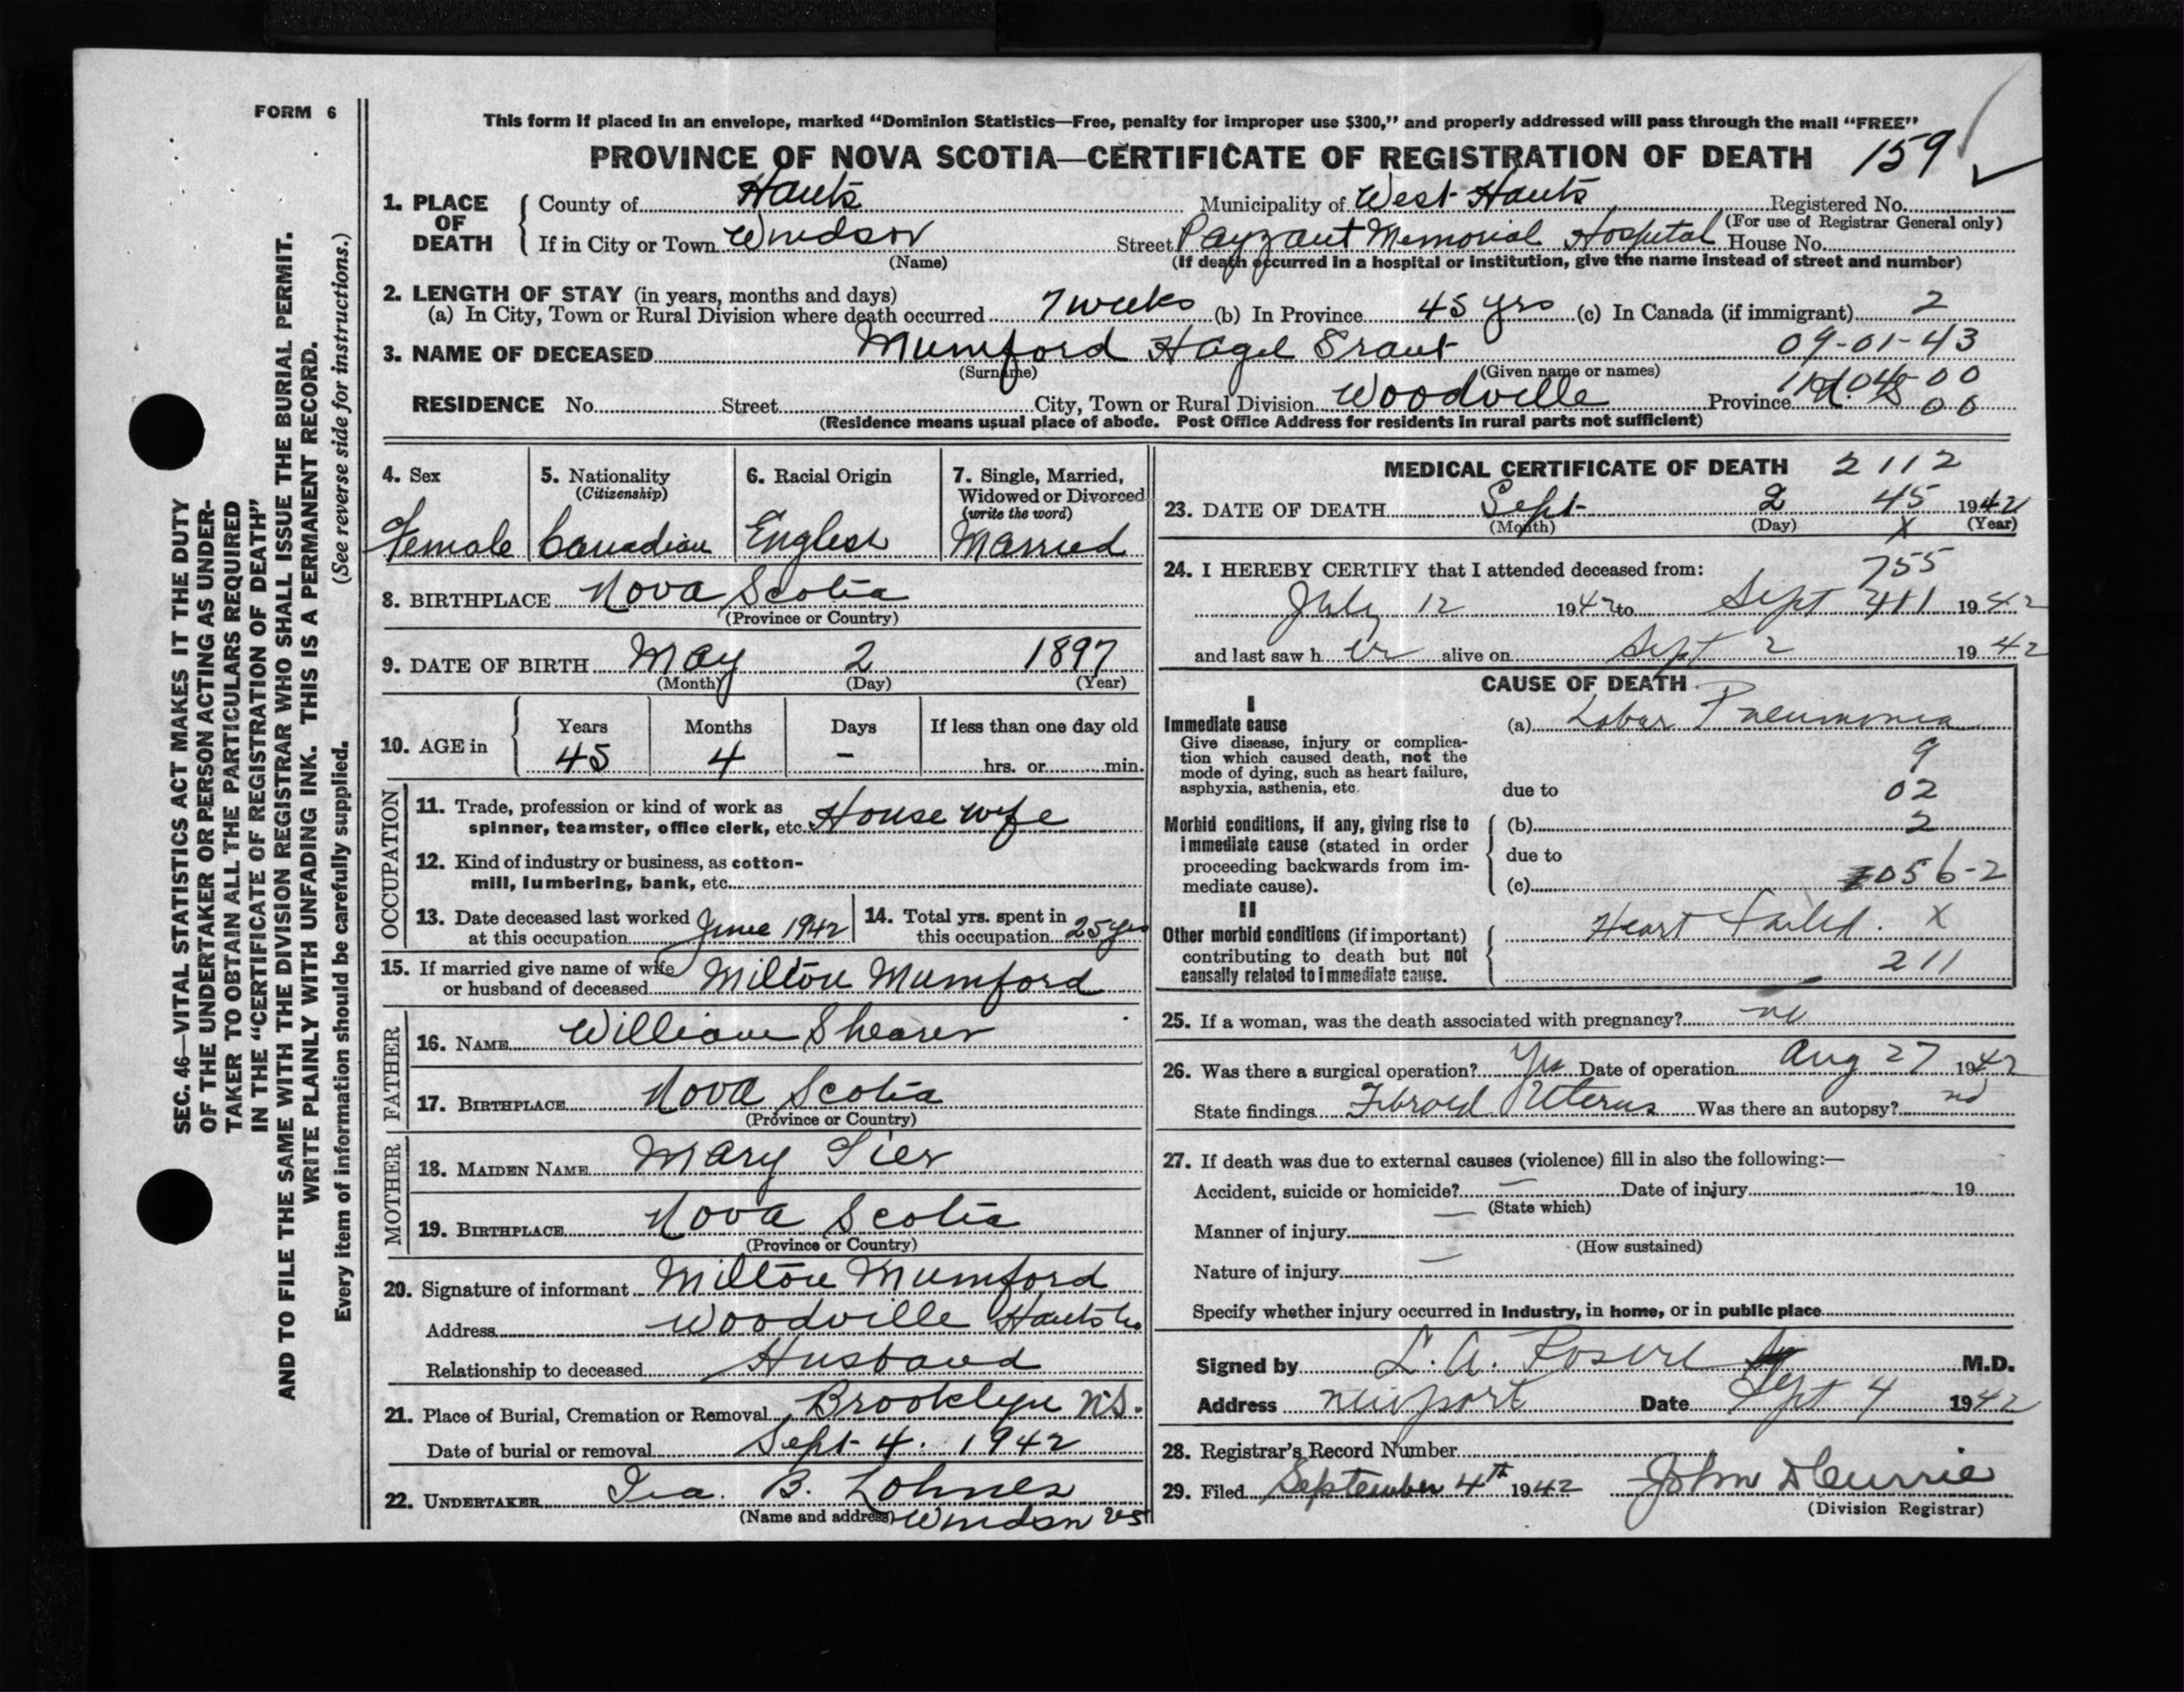 FORM 6
This form if placed in an envelope, marked “Dominion Statistics—Free, penalty for improper use $300,” and properly addressed will pass through the mail “FREE”
PROVINCE OF NOVA SCOTIA—CERTIFICATE OF REGISTRATION OF DEATH 159
1. PLACE OF DEATH County of Hants Municipality of West Hants Registered No.
(For use of Registrar General only)
If in City or Town Windsor Street Payzant Memorial Hospital House No.
(Name) (If death occurred in a hospital or institution, give the name instead of street and number)
2. LENGTH OF STAY (in years, months and days)
(a) In City, Town or Rural Division where death occurred 7 weeks (b) In Province 45 yrs (c) In Canada (if immigrant) 2
3. NAME OF DECEASED Mumford Hazel Grant 09-01-43
(Surname) (Given name or names)
RESIDENCE No. Street City, Town or Rural Division Woodville Province N.S 00
(Residence means usual place of abode. Post Office Address for residents in rural parts not sufficient)
4. Sex 5. Nationality (Citizenship) 6. Racial Origin 7. Single, Married, Widowed or Divorced (write the word)
Female Canadian English Married
8. BIRTHPLACE Nova Scotia
(Province or Country)
9. DATE OF BIRTH May 2 1897
(Month) (Day) (Year)
10. AGE in Years Months Days If less than one day old
45 4 – hrs. or min.
OCCUPATION
11. Trade, profession or kind of work as
spinner, teamster, office clerk, etc. House wife
12. Kind of industry or business, as cotton-
mill, lumbering, bank, etc.
13. Date deceased last worked at this occupation June 1942 14. Total yrs. spent in this occupation 25 yrs
15. If married give name of wife
or husband of deceased Milton Mumford
FATHER
16. NAME William Shearer
17. BIRTHPLACE Nova Scotia
(Province or Country)
MOTHER
18. MAIDEN NAME Mary
19. BIRTHPLACE Nova Scotia
(Province or Country)
20. Signature of informant Milton Mumford
Address Woodville Hants Co
Relationship to deceased Husband
21. Place of Burial, Cremation or Removal Brooklyn NS.
Date of burial or removal Sept 4. 1942
22. UNDERTAKER Ira. B. Lohnes
(Name and address) Windsor NS
MEDICAL CERTIFICATE OF DEATH 2112
23. DATE OF DEATH Sept 2 45 1942
(Month) (Day) X (Year)
24. I HEREBY CERTIFY that I attended deceased from: 755
July 12 1942 to Sept 1942
and last saw h er alive on Sept 2 1942
CAUSE OF DEATH
I
Immediate cause (a) Lobar Pneumonia
Give disease, injury or complica-
tion which caused death, not the
mode of dying, such as heart failure,
asphyxia, asthenia, etc. due to
9
02
Morbid conditions, if any, giving rise to
immediate cause (stated in order
proceeding backwards from im-
mediate cause).
(b) 2
due to
(c) 056-2
II
Other morbid conditions (if important)
contributing to death but not
causally related to immediate cause.
Heart Failed. X
211
25. If a woman, was the death associated with pregnancy? no
26. Was there a surgical operation? Yes Date of operation Aug 27 1942
State findings Fibroid Uterus Was there an autopsy? no
27. If death was due to external causes (violence) fill in also the following:—
Accident, suicide or homicide? — Date of injury 19
(State which)
Manner of injury —
(How sustained)
Nature of injury —
Specify whether injury occurred in Industry, in home, or in public place
Signed by M.D.
Address Newport Date Sept 4 1942
28. Registrar’s Record Number
29. Filed September 4th 1942 John D Currie
(Division Registrar)
SEC. 46—VITAL STATISTICS ACT MAKES IT THE DUTY
OF THE UNDERTAKER OR PERSON ACTING AS UNDER-
TAKER TO OBTAIN ALL THE PARTICULARS REQUIRED
IN THE “CERTIFICATE OF REGISTRATION OF DEATH”
AND TO FILE THE SAME WITH THE DIVISION REGISTRAR WHO SHALL ISSUE THE BURIAL PERMIT.
WRITE PLAINLY WITH UNFADING INK. THIS IS A PERMANENT RECORD.
Every item of information should be carefully supplied. (See reverse side for instructions.)